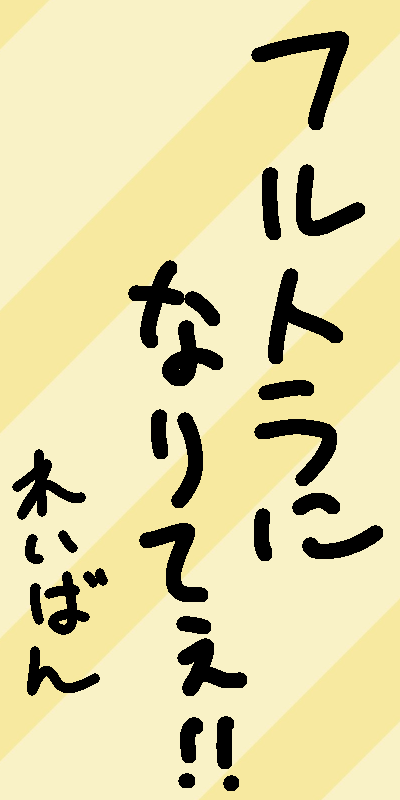 フルトラに
なりてぇ!!
れいばん